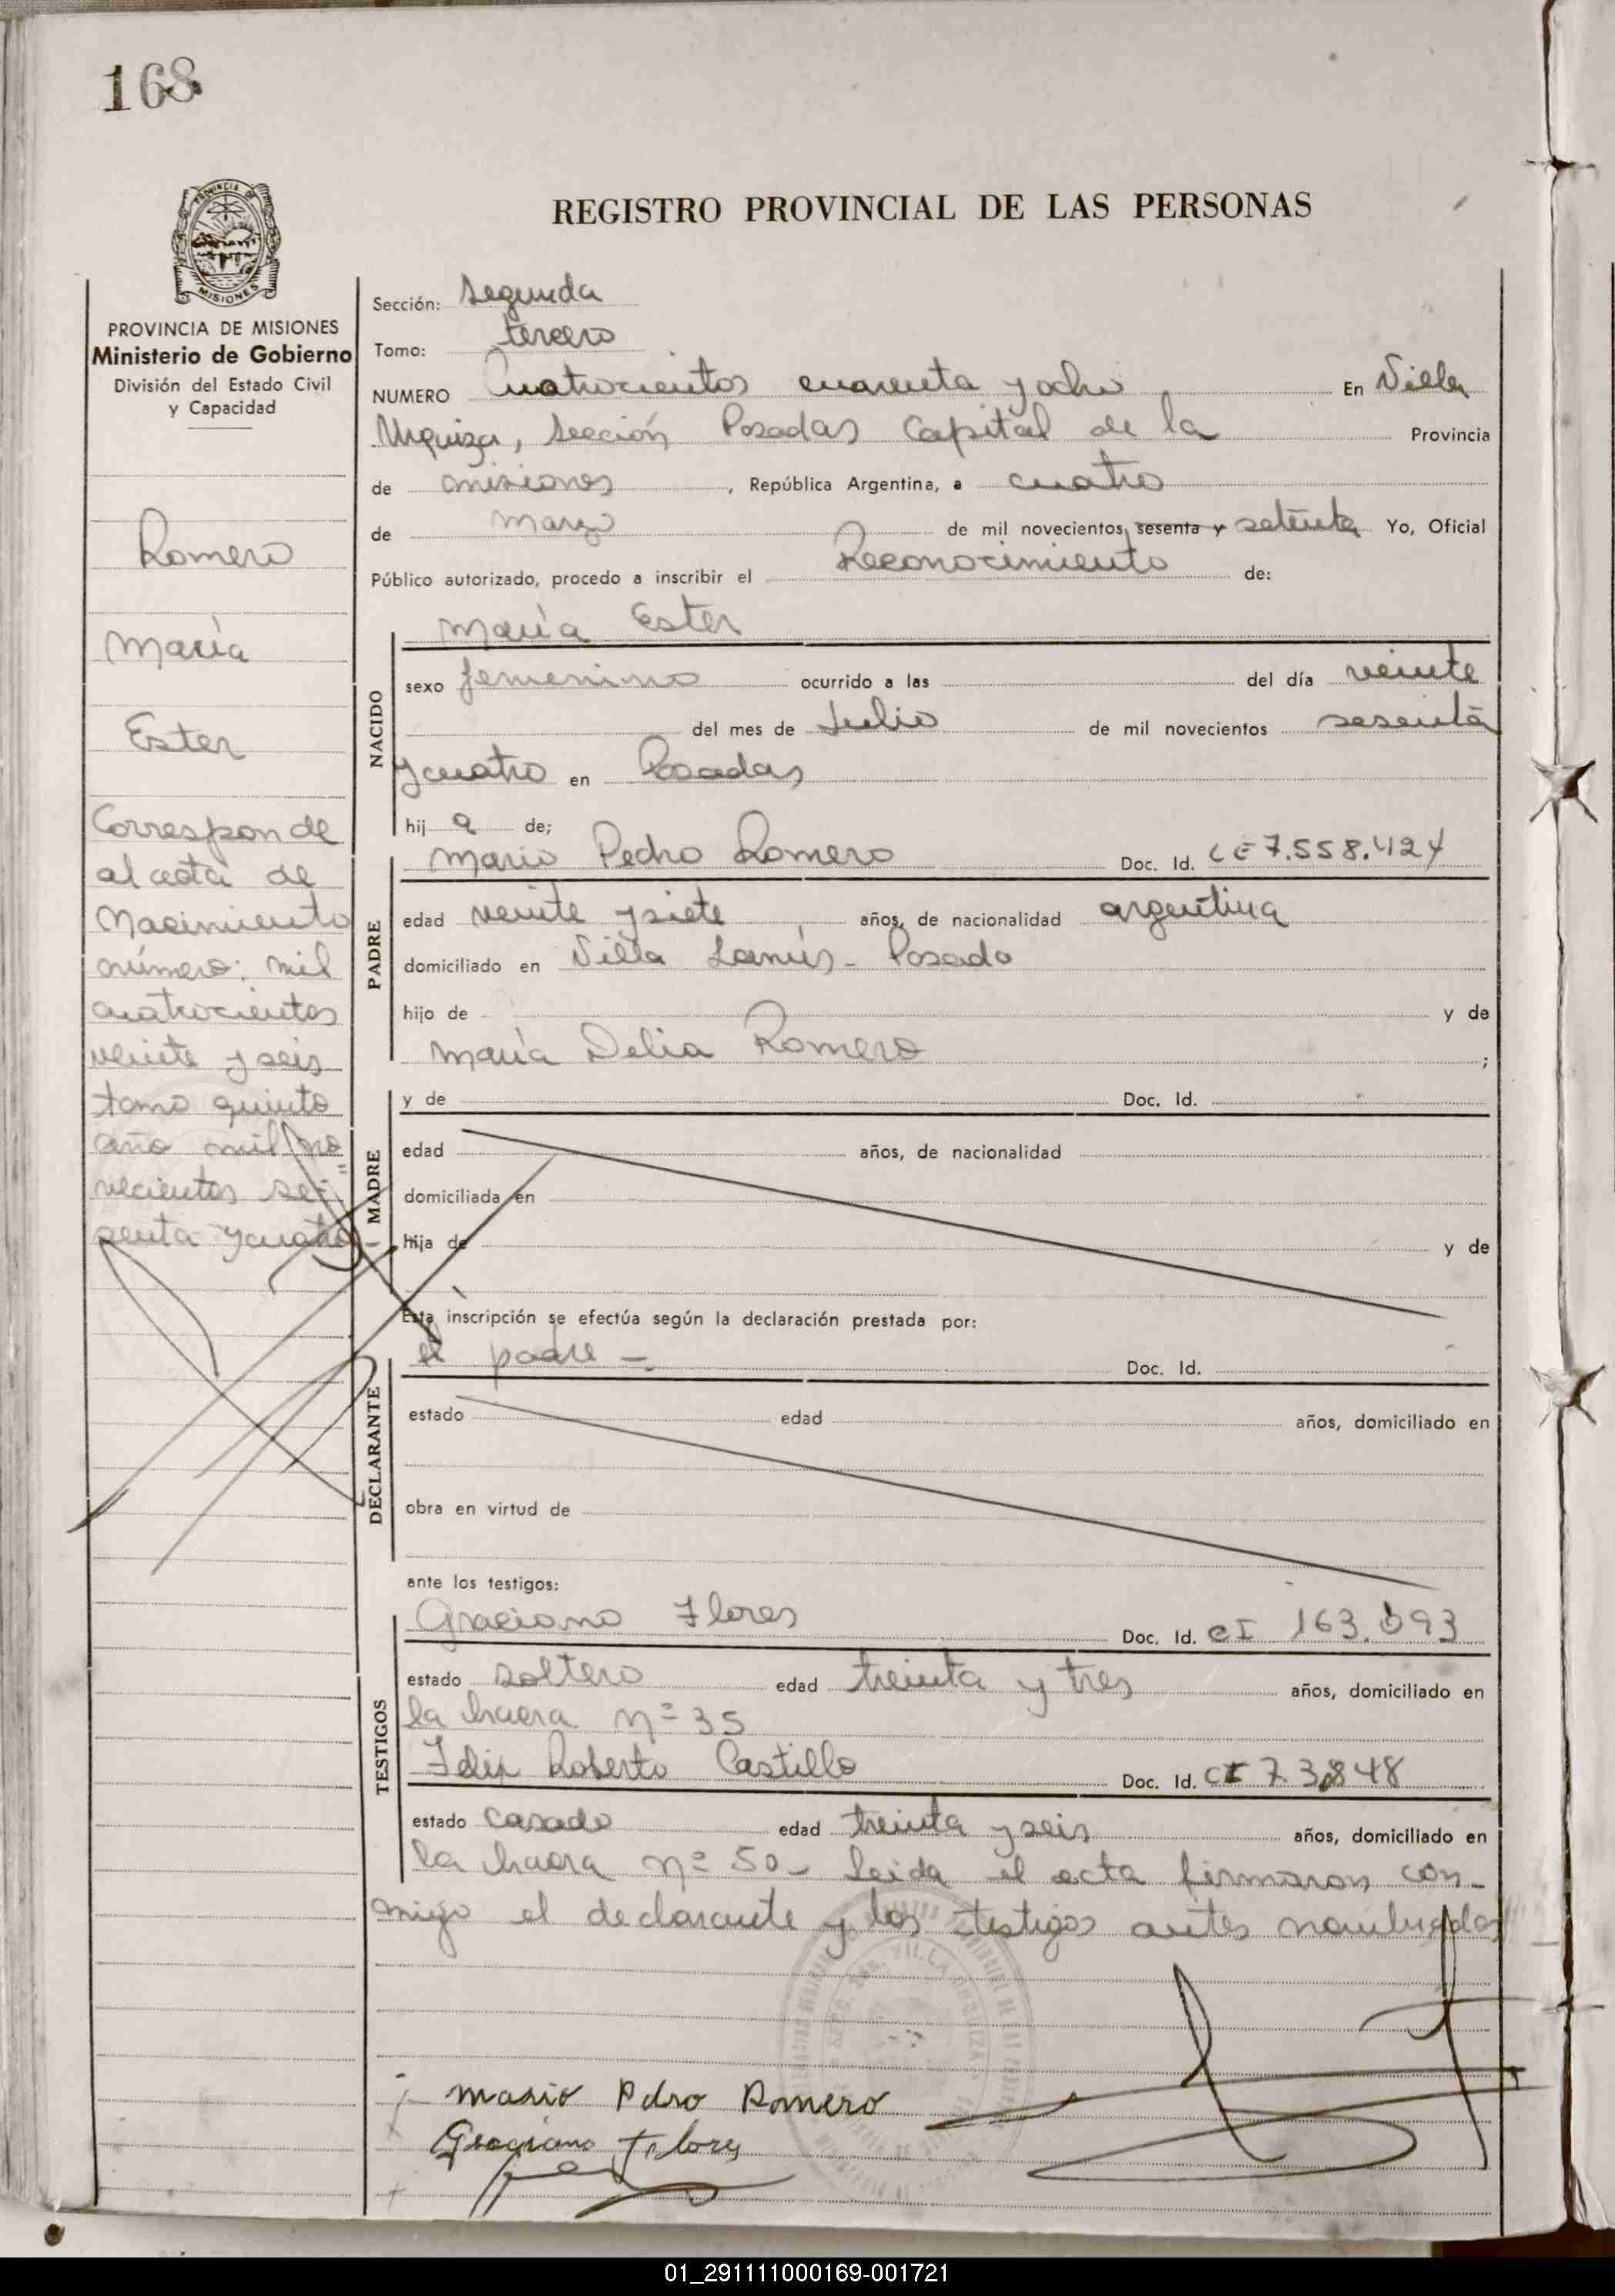 168
REGISTRO PROVINCIAL DE LAS PERSONAS
PROVINCIA DE MISIONES
Ministerio de Gobierno
División del Estado Civil
y Capacidad
Romero
María
Ester
Corresponde
al acta de
Nacimiento
número: mil
cuatrocientos
veinte y seis
tomo quinto
año mil no=
vecientos se-
senta y cuatro-
Sección: Segunda
Tomo: tercero
NUMERO Cuatrocientos cuarenta y ocho En Villa
Urquiza, Sección Posadas Capital de la Provincia
de Misiones, República Argentina, a cuatro
de Marzo de mil novecientos sesenta y setenta Yo, Oficial
Público autorizado, procedo a inscribir el Reconocimiento de:
María Ester
NACIDO
sexo femenino ocurrido a las del día veinte
del mes de Julio de mil novecientos sesenta
y cuatro en Posadas
hij a de;
Mario Pedro Romero Doc. Id. LE 7.558.424
PADRE
edad veinte y siete años, de nacionalidad argentina
domiciliado en Villa Lanús - Posada
hijo de y de
María Delia Romero ;
MADRE
y de Doc. Id.
edad años, de nacionalidad
domiciliada en
hija de y de
Esta inscripción se efectúa según la declaración prestada por:
el padre -. Doc. Id.
DECLARANTE
estado edad años, domiciliado en
obra en virtud de
ante los testigos:
Graciano Flores Doc. Id. CI 163.093
TESTIGOS
estado soltero edad treinta y tres años, domiciliado en
la chacra nº 35
Felix Roberto Castillo Doc. Id. CI 7.3848
estado casado edad treinta y seis años, domiciliado en
la chacra nº 50- Leida el acta firmaron con-
migo el declarante y los testigos antes nombrados
VILLA URQUIZA
Mario Pdro Romero
Graciano Flores
01_291111000169-001721